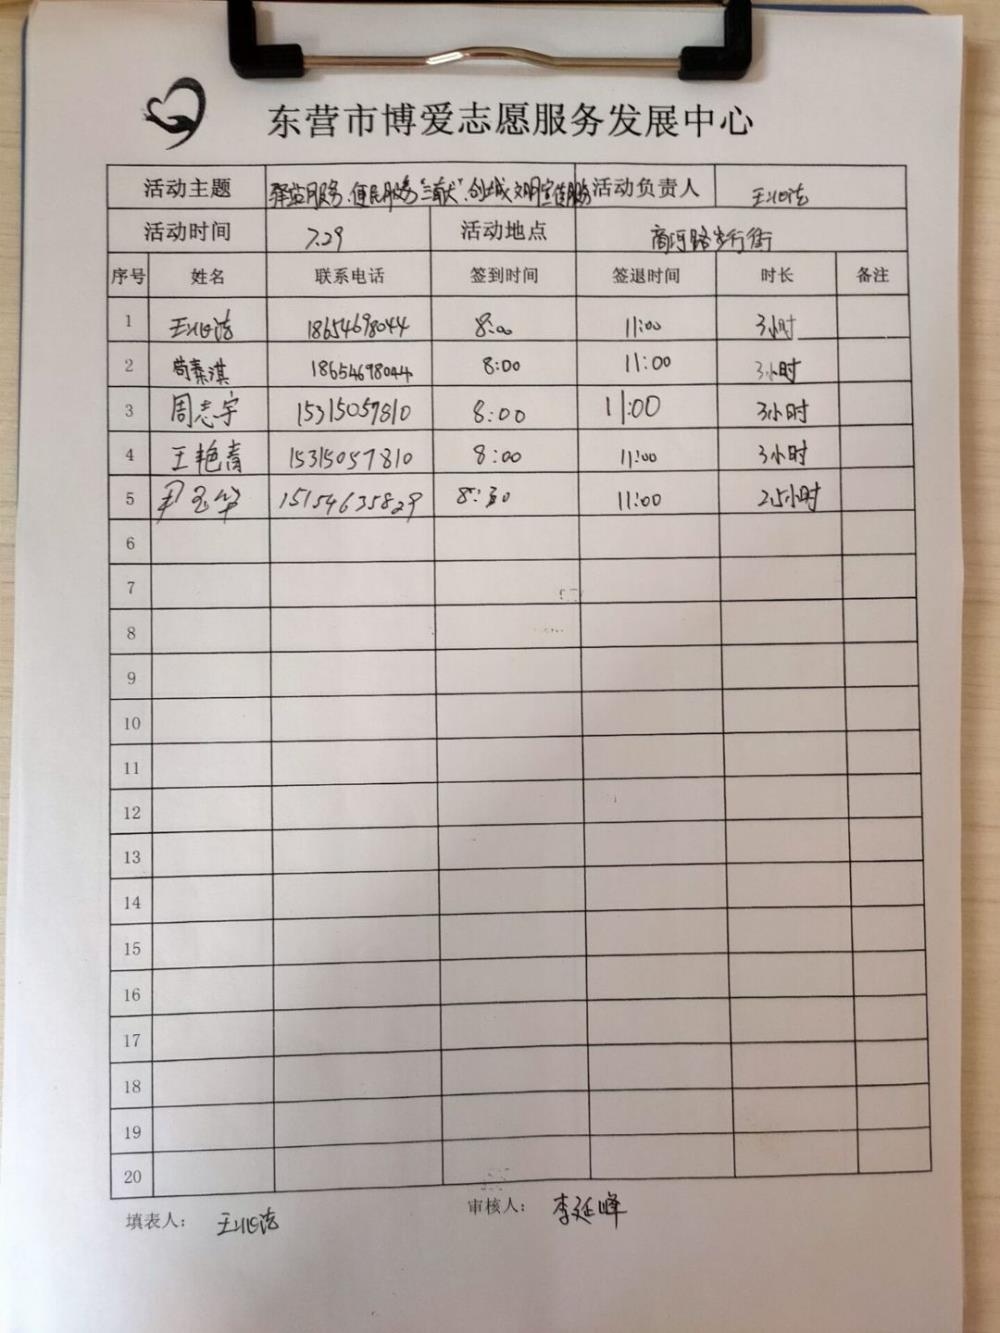 东营市博爱志愿服务发展中心
活动主题 驿站服务、便民服务"三献"、创城文明宣传服务 活动负责人
活动时间 7.29 活动地点 商河路步行街
序号 姓名 联系电话 签到时间 签退时间 时长 备注
1 18654698044 8:00 11:00 3小时
2 苟秦淇 18654698044 8:00 11:00 3小时
3 周志宇 15315057810 8:00 11:00 3小时
4 王艳青 15315057810 8:00 11:00 3小时
5 尹玉华 15154635829 8:30 11:00 2.5小时
6
7
8
9
10
11
12
13
14
15
16
17
18
19
20
填表人： 审核人： 李延峰